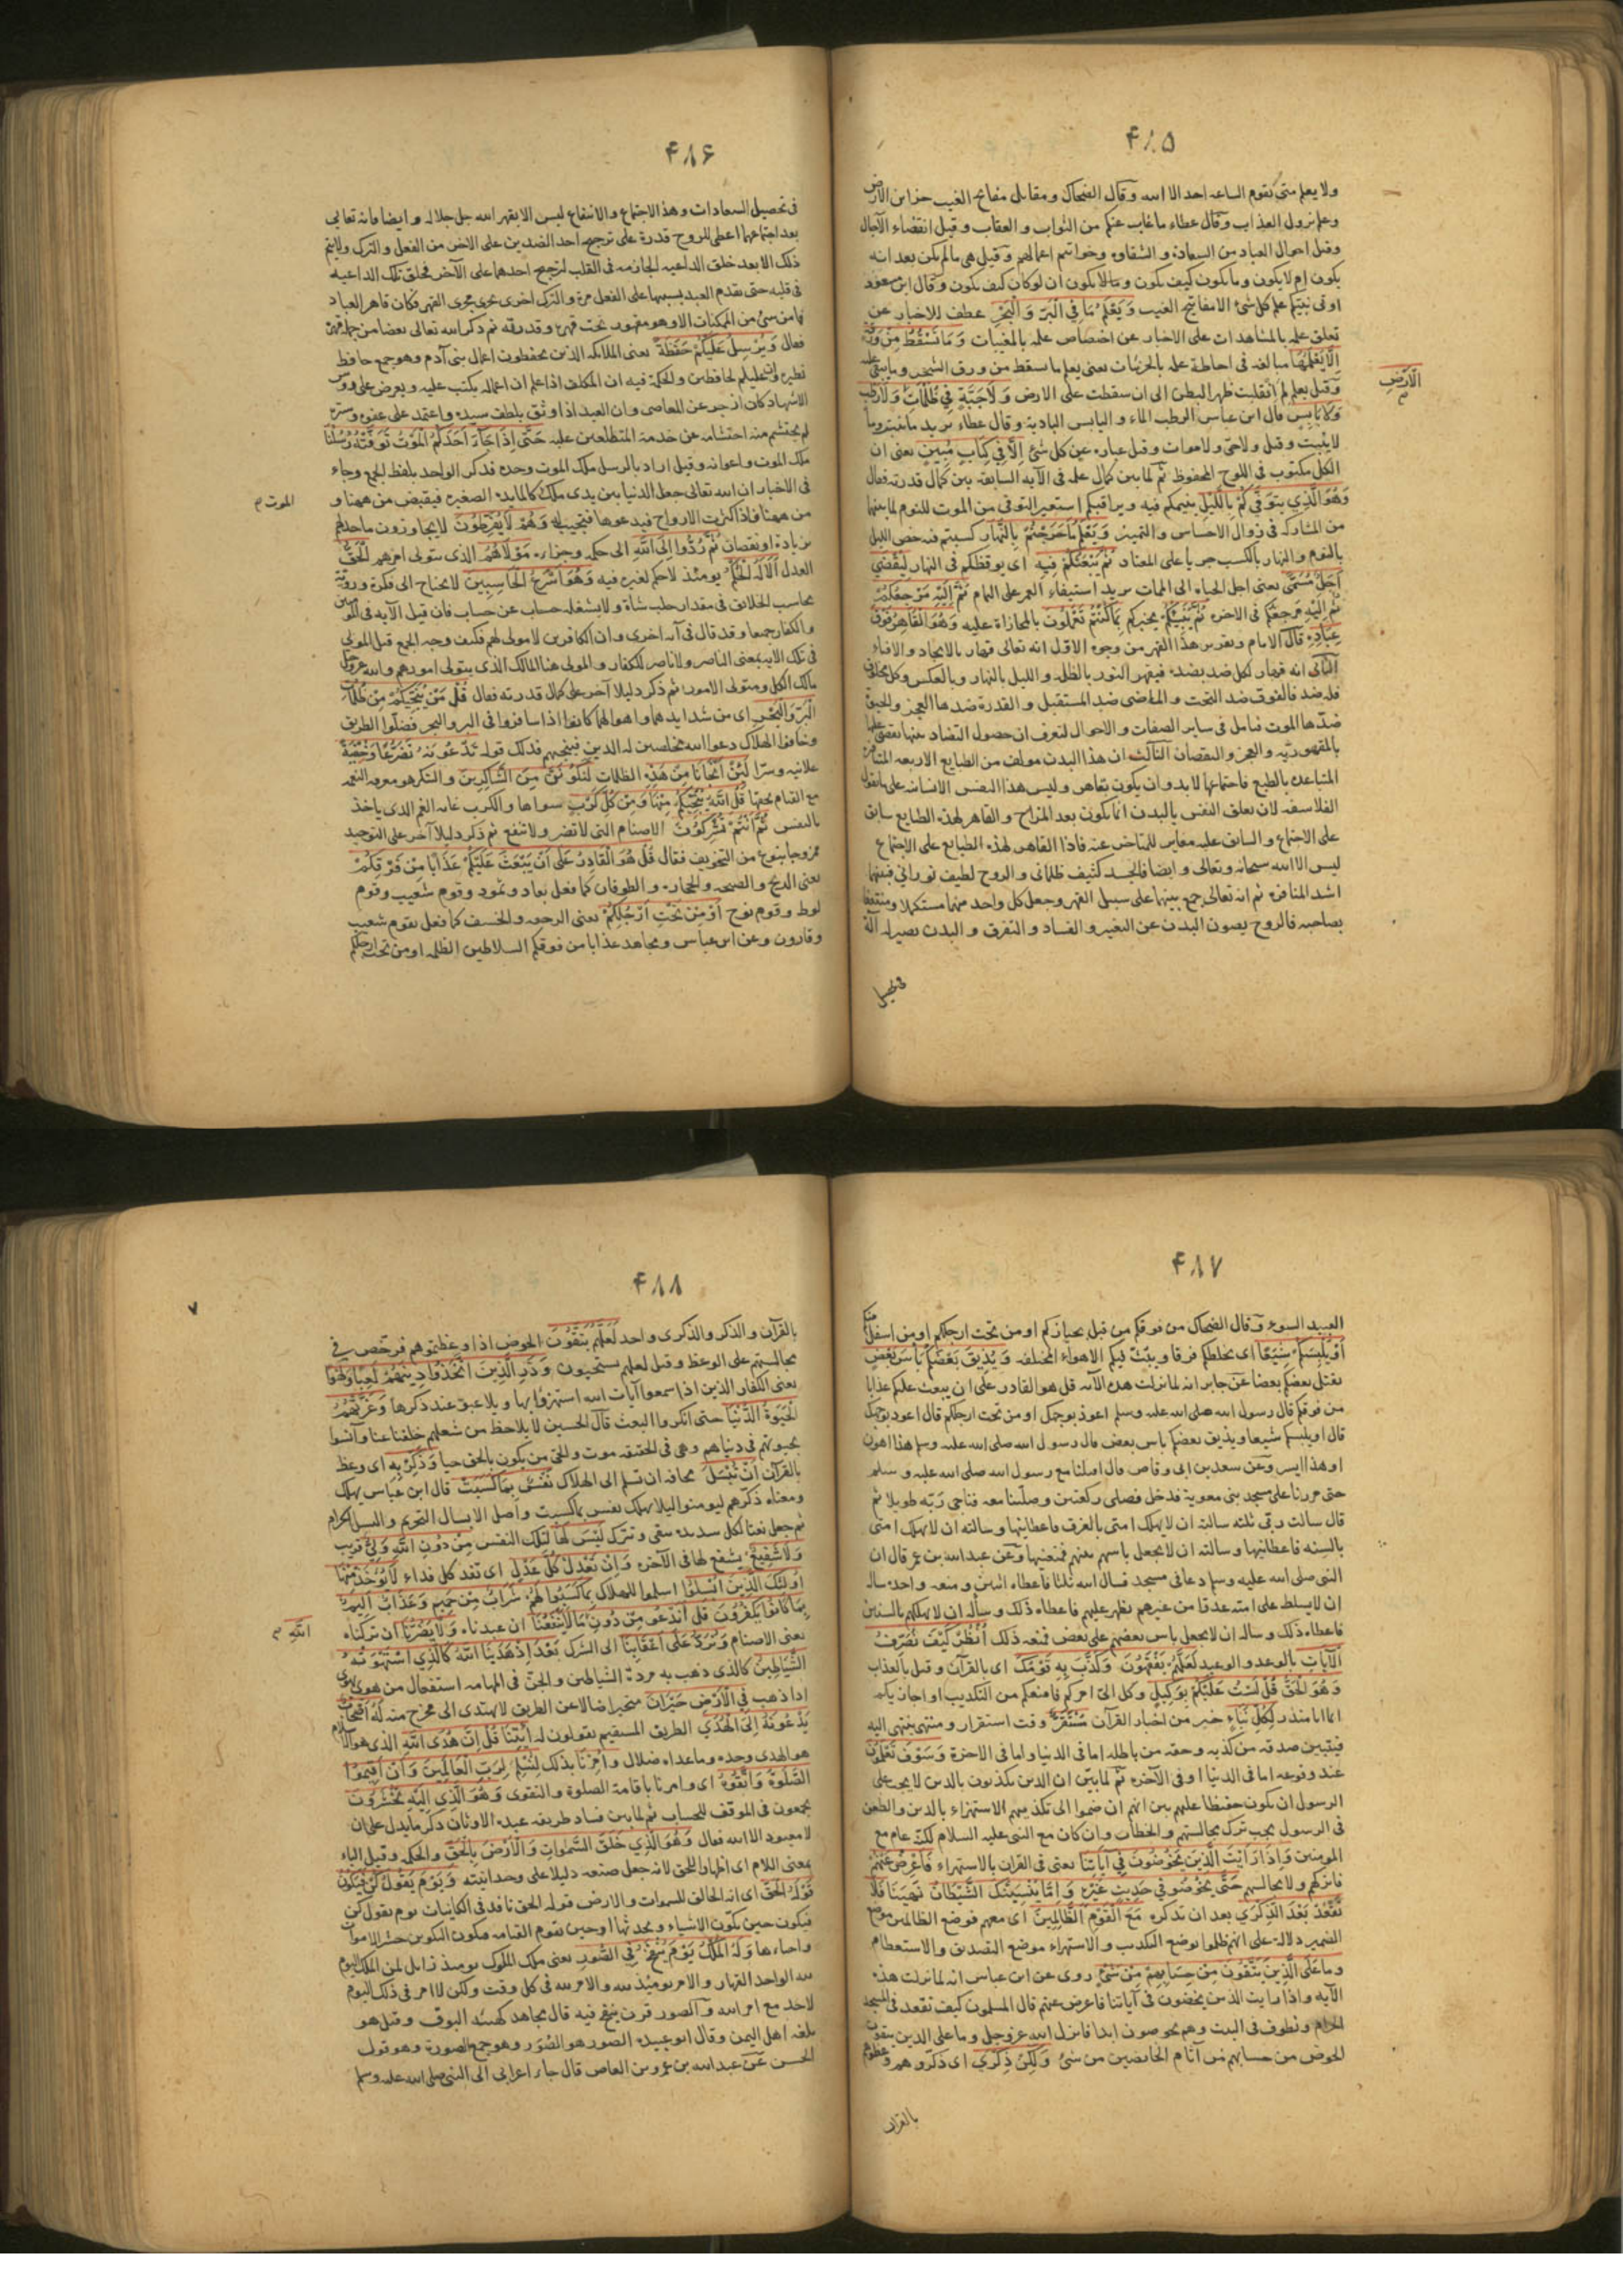 ۴۸۵
ولا يعلم متى تقوم الساعه احد الا الله وقال الضحاك ومقاتل مفاتح الغيب خزائن الارض
وعلم نزول العذاب وقال عطاء ما غاب عنكم من الثواب والعقاب وقيل انقضاء الآجال
وقيل احوال العباد من السعادة والشقاوه وخواتيم اعمالهم وقيل هى ما لم يكن بعد انه
يكون ام لا يكون وما يكون كيف يكون وما لا يكون ان لو كان كيف يكون وقال ابن مسعود
اوتى نبيكم علم كل شئ الا مفاتيح الغيب وَيَعْلَمُ مَا فِي الْبَرِّ وَالْبَحْرِ عطف للاخبار عن
تعلق علمه بالمشاهدات على الاخبار عن اختصاص علمه بالمغيبات وَمَا تَسْقُطُ مِنْ وَرَقَةٍ
اِلَّا يَعْلَمُهَا مبالغه فى احاطة علمه بالجزئيات يعنى يعلم ما يسقط من ورق الشجر وما يبقى عليه
وقيل يعلم كم انقلبت ظهرا لبطن الى ان سقطت على الارض وَلَا حَبَّةٍ فِي ظُلُمَاتِ وَلَا رَطْبٍ
الْاَرْضِ
وَلَا يَابِسٍ قال ابن عباس الرطب الماء واليابس البادية وقال عطاء يريد ما ينبت وما
لا ينبت وقيل ولا حى ولا موات وقيل عباره عن كل شئ اِلَّا فِي كِتَابٍ مُبِينٍ يعنى ان
الكل مكتوب فى اللوح المحفوظ ثم لما بين كمال علمه فى الآيه السابقه بين كمال قدرته فقال
وَهُوَ الَّذِي يَتَوَفّٰيكُمْ بِاللَّيْلِ ينيمكم فيه ويراقبكم استعير التوفى من الموت للنوم لما بينهما
من المشاركه فى زوال الاحساس والتمييز وَيَعْلَمُ مَا جَرَحْتُمْ بِالنَّهَارِ كسبتم فيه خص الليل
بالنوم والنهار بالكسب جريا على المعتاد ثُمَّ يَبْعَثُكُمْ فِيهِ اى يوقظكم فى النهار لِيُقْضٰي
اَجَلٌ مُسَمًّى يعنى اجل الحياه الى الممات يريد استيفاء العمر على التمام ثُمَّ اِلَيْهِ مَرْجِعُكُمْ
ثُمَّ اِلَيْهِ مَرْجِعُكُمْ فى الاخره ثُمَّ يُنَبِّئُكُمْ يخبركم بِمَا كُنْتُمْ تَعْمَلُونَ بالمجازاة عليه وَهُوَ الْقَاهِرُ فَوْقَ
عِبَادِهِ قال الامام وتقرير هذا القهر من وجوه الاول انه تعالى قهار بالايجاد والافناء
الثانى انه قهار لكل ضد بضده فيقهر النور بالظلمه والليل بالنهار وبالعكس وكل مخلوق
فله ضد فالفوق ضد التحت والماضى ضد المستقبل والقدرة ضدها العجز والحيوة
ضدها الموت فتأمل فى سائر الصفات والاحوال لتعرف ان حصول التضاد بينها يقضى عليها
بالمقهوريه والعجز والنقصان الثالث ان هذا البدن مؤلف من الطبايع الاربعه المتنافره
المتباعده بالطبع فاجتماعها لا بد وان يكون بقاهر وليس هذا النفس الانسانيه على ما يقول
الفلاسفه لان تعلق النفس بالبدن انما يكون بعد المزاج والقاهر لهذه الطبايع سابق
على الاجتماع والسابق عليه مغاير للمتاخر عنه فاذا القاهر لهذه الطبايع على الاجتماع
ليس الا الله سبحانه وتعالى وايضا فالجسد كثيف ظلمانى والروح لطيف نورانى فبينهما
اشد المنافره ثم انه تعالى جمع بينهما على سبيل القهر وجعل كل واحد منهما مستكملا ومنتفعا
بصاحبه فالروح يصون البدن عن التغير والفساد والتفرق والبدن يصير له آلة
فى تحصيل
۴۸۶
فى تحصيل السعادات وهذا الاجتماع والانتفاع ليس الا بقهر الله جل جلاله وايضا فانه تعالى
بعد اجتماعهما اعطى للروح قدرة على ترجيح احد الضدين على الاخر من الفعل والترك ولا يتم
ذلك الا بعد خلق الداعيه الجازمه فى القلب لترجح احدهما على الآخر فخلق تلك الداعيه
فى قلبه حتى يقدم العبد بسببها على الفعل مرة والترك اخرى يجرى مجرى القهر فكان قاهر العباد
فما من شئ من الممكنات الا وهو مقهور تحت قهره وقدرته ثم ذكر الله تعالى بعضا من جمله قهره
فقال وَيُرْسِلُ عَلَيْكُمْ حَفَظَةً يعنى الملائكه الذين يحفظون اعمال بنى آدم وهو جمع حافظ
نظيره وان عليكم لحافظين والحكمة فيه ان المكلف اذا علم ان اعماله يكتب عليه ويعرض على رؤس
الاشهاد كان ازجر عن المعاصى وان العبد اذا وثق بلطف سيده واعتمد على عفوه وستره
لم يحتشم منه احتشامه عن خدمه المتطلعين عليه حَتّٰى اِذَا جَاءَ اَحَدَكُمُ الْمَوْتُ تَوَفَّتْهُ رُسُلُنَا
ملك الموت واعوانه وقيل اراد بالرسل ملك الموت وحده فذكر الواحد بلفظ الجمع وجاء
فى الاخبار ان الله تعالى جعل الدنيا بين يدى ملك كالمايده الصغيره فيقبض من ههنا و
الموت
من ههنا فاذا كثرت الارواح فيدعوها فتجيب له وَهُمْ لَا يُفَرِّطُونَ لا يجاوزون ما حد لهم
بزيادة او نقصان ثُمَّ رُدُّوا اِلَى اللّٰهِ الى حكمه وجزاءه مَوْلَاهُمُ الذى يتولى امرهم الْحَقِّ
العدل اَلَا لَهُ الْحُكْمُ يومئذ لا حكم لغيره فيه وَهُوَ اَسْرَعُ الْحَاسِبِينَ لا يحتاج الى فكرة وروية
يحاسب الخلائق فى مقدار حلب شاة ولا يشغله حساب عن حساب فان قيل الآيه فى المؤمنين
والكفار جميعا وقد قال فى آيه اخرى وان الكافرين لا مولى لهم فكيف وجه الجمع قيل المولى
فى تلك الايه بمعنى الناصر ولا ناصر للكفار والمولى هنا المالك الذى يتولى امورهم والله عز وجل
مالك الكل ومتولى الامور ثم ذكر دليلا آخر على كمال قدرته فقال قُلْ مَنْ يُنَجِّيكُمْ مِنْ ظُلُمَاتِ
الْبَرِّ وَالْبَحْرِ اى من شدايدهما واهوالهما كانوا اذا سافروا فى البر والبحر فضلوا الطريق
وخافوا الهلاك دعوا الله مخلصين له الدين فينجيهم فذلك قوله تَدْعُونَهُ تَضَرُّعًا وَخُفْيَةً
علانيه وسرا لَئِنْ اَنْجَانَا مِنْ هٰذِهِ الظلمات لَنَكُونَنَّ مِنَ الشَّاكِرِينَ والشكر هو معرفه النعمه
مع القيام بحقها قُلِ اللّٰهُ يُنَجِّيكُمْ مِنْهَا وَمِنْ كُلِّ كَرْبٍ سواها والكرب غايه الغم الذى ياخذ
بالنفس ثُمَّ اَنْتُمْ تُشْرِكُونَ الاصنام التى لا تضر ولا تنفع ثم ذكر دليلا آخر على التوحيد
ممزوجا بنوع من التخويف فقال قُلْ هُوَ الْقَادِرُ عَلَى اَنْ يَبْعَثَ عَلَيْكُمْ عَذَابًا مِنْ فَوْقِكُمْ
يعنى الريح والصيحه والحجاره والطوفان كما فعل بعاد وثمود وقوم شعيب وقوم
لوط وقوم نوح اَوْ مِنْ تَحْتِ اَرْجُلِكُمْ يعنى الرجفه والخسف كما فعل بقوم شعيب
وقارون وعن ابن عباس ومجاهد عذابا من فوقكم السلاطين الظلمه او من تحت ارجلكم
۴۸۷
العبيد السوء وقال الضحاك من فوقكم من قبل كباركم او من تحت ارجلكم او من اسفل منكم
اَوْ يَلْبِسَكُمْ شِيَعًا اى يخلطكم فرقا ويبث فيكم الاهواء المختلفه وَيُذِيقَ بَعْضَكُمْ بَأْسَ بَعْضٍ
يقتل بعضكم بعضا عن جابر انه لما نزلت هذه الآيه قل هو القادر على ان يبعث عليكم عذابا
من فوقكم قال رسول الله صلى الله عليه وسلم اعوذ بوجهك او من تحت ارجلكم قال اعوذ بوجهك
قال او يلبسكم شيعا ويذيق بعضكم باس بعض قال رسول الله صلى الله عليه وسلم هذا اهون
او هذا ايسر وعن سعد بن ابى وقاص قال اقبلنا مع رسول الله صلى الله عليه وسلم
حتى مررنا على مسجد بنى معوية فدخل فصلى ركعتين وصلينا معه فناجى ربه طويلا ثم
قال سالت ربى ثلثه سالته ان لا يهلك امتى بالغرق فاعطانيها وسالته ان لا يهلك امتى
بالسنه فاعطانيها وسالته ان لا يجعل باسهم بينهم فمنعنيها وعن عبد الله بن عمر قال ان
النبى صلى الله عليه وسلم دعا فى مسجد فسال الله ثلثا فاعطاه اثنين ومنعه واحده ساله
ان لا يسلط على امته عدوا من غيرهم يظهر عليهم فاعطاه ذلك وساله ان لا يهلكهم بالسنين
فاعطاه ذلك وساله ان لا يجعل باس بعضهم على بعض فمنعه ذلك اُنْظُرْ كَيْفَ نُصَرِّفُ
الْآيَاتِ بالوعد والوعيد لَعَلَّهُمْ يَفْقَهُونَ وَكَذَّبَ بِهِ قَوْمُكَ اى بالقرآن وقيل بالعذاب
وَهُوَ الْحَقُّ قُلْ لَسْتُ عَلَيْكُمْ بِوَكِيلٍ وكل الىّ امركم فامنعكم من التكذيب او اجازيكم
انما انا منذر لِكُلِّ نَبَاٍ خبر من اخبار القرآن مُسْتَقَرٌّ وقت استقرار ومنتهى ينتهى اليه
فيتبين صدقه من كذبه وحقه من باطله اما فى الدنيا واما فى الاخرة وَسَوْفَ تَعْلَمُونَ
عند وقوعه اما فى الدنيا او فى الآخره ثم لما بين ان الذين يكذبون بالدين لا يجب على
الرسول ان يكون حفيظا عليهم بين انهم ان ضموا الى تكذيبهم الاستهزاء بالدين والطعن
فى الرسول يجب ترك مجالستهم والخطاب وان كان مع النبى عليه السلام لكنه عام مع
المؤمنين وَاِذَا رَاَيْتَ الَّذِينَ يَخُوضُونَ فِي آيَاتِنَا يعنى فى القران بالاستهزاء فَاَعْرِضْ عَنْهُمْ
فاتركهم ولا تجالسهم حَتّٰى يَخُوضُو فِي حَدِيثٍ غَيْرِهِ وَاِمَّا يُنْسِيَنَّكَ الشَّيْطَانُ نهينا فَلَا
تَقْعُدْ بَعْدَ الذِّكْرٰي بعد ان تذكره مَعَ الْقَوْمِ الظَّالِمِينَ اى معهم فوضع الظالمين موضع
الضمير دلالة على انهم ظلموا بوضع التكذيب والاستهزاء موضع التصديق والاستعظام
وما عَلَى الَّذِينَ يَتَّقُونَ مِنْ حِسَابِهِمْ مِنْ شَئٍ روى عن ابن عباس انه لما نزلت هذه
الآيه واذا رايت الذين يخضون فى آياتنا فاعرض عنهم قال المسلمون كيف نقعد فى المسجد
الحرام ونطوف فى البيت وهم يخوصون ابدا فانزل الله عز وجل وما على الذين يتقون
الخوض من حسابهم من آثام الخائضين من شئ وَلٰكِنْ ذِكْرٰي اى ذكروهم وعظوهم
بالقرآن
۴۸۸
٧
بالقرآن والذكر والذكرى واحد لَعَلَّهُمْ يَتَّقُونَ الخوض اذا وعظتموهم فرخص فى
مجالستهم على الوعظ وقيل لعلهم يستحيون وَذَرِ الَّذِينَ اتَّخَذُوا دِينَهُمْ لَعِبًا وَلَهْوًا
يعنى الكفار الذين اذا سمعوا آيات الله استهزؤا بها وتلاعبوا عند ذكرها وَغَرَّتْهُمُ
الْحَيٰوةُ الدُّنْيَا حتى انكروا البعث قال الحسين لا يلاحظ من شغلهم خلقنا عنا وآنسوا
بحيوتهم فى دنياهم وهى فى الحقيقه موت والحى من يكون بالحق حيا وَذَكِّرْ بِهِ اى وعظ
بالقرآن اَنْ تُبْسَلَ مخافه ان تسلم الى الهلاك نَفْسٌ بِمَا كَسَبَتْ قال ابن عباس يهلك
ومعناه ذكرهم ليؤمنوا ليلا يهلك نفس بما كسبت واصل الابسال التحريم والبسل الحرام
ثم جعل نعتا لكل شديده يتقى وتترك لَيْسَ لَهَا لتلك النفس مِنْ دُونِ اللّٰهِ وَلِيٌّ قريب
وَلَا شَفِيعٌ يشفع لها فى الآخره وَاِنْ تَعْدِلْ كُلَّ عَدْلٍ اى تفد كل فداء لَا يُؤْخَذْ مِنْهَا
اُولٰئِكَ الَّذِينَ اُبْسِلُوا اسلموا للهلاك بِمَا كَسَبُوا لَهُمْ شَرَابٌ مِنْ حَمِيمٍ وَعَذَابٌ اَلِيمٌ
بِمَا كَانُوا يَكْفُرُونَ قُلْ اَنَدْعُو مِنْ دُونِ مَا لَا يَنْفَعُنَا ان عبدناه وَلَا يَضُرُّنَا ان تركناه
اللّٰهِ
يعنى الاصنام وَنُرَدُّ عَلَى اَعْقَابِنَا الى الشرك بَعْدَ اِذْ هَدٰينَا اللّٰهُ كَالَّذِي اسْتَهْوَتْهُ
الشَّيَاطِينُ كالذى ذهب به مردة الشياطين والجن فى المهامه استفعال من هوى يهوى
اذا ذهب فِي الْاَرْضِ حَيْرَانَ متحيرا ضالا عن الطريق لا يهتدى الى مخرج منه لَهُ اَصْحَابٌ
يَدْعُونَهُ اِلَى الْهُدٰي الطريق المستقيم يقولون له اِئْتِنَا قُلْ اِنَّ هُدَى اللّٰهِ الذى هو الاسلام
هو الهدى وحده وما عداه ضلال وَاُمِرْنَا بذلك لِنُسْلِمَ لِرَبِّ الْعَالَمِينَ وَاَنْ اَقِيمُوا
الصَّلٰوةَ وَاتَّقُوهُ اى وامرنا باقامة الصلوة والتقوى وَهُوَ الَّذِي اِلَيْهِ تُحْشَرُونَ
يجمعون فى الموقف للحساب ثم لما بين فساد طريقه عبده الاوثان ذكر ما يدل على ان
لا معبود الا الله فقال وَهُوَ الَّذِي خَلَقَ السَّمٰوَاتِ وَالْاَرْضَ بِالْحَقِّ والحكمه وقيل الباء
بمعنى اللام اى اظهارا للحق لانه جعل صنعه دليلا على وحدانيته وَيَوْمَ يَقُولُ كُنْ فَيَكُونُ
قَوْلُهُ الْحَقُّ اى انه الخالق للسموات والارض قوله الحق نافذ فى الكاينات يوم يقول كن
فيكون حين يكون الاشياء ويحدثها او حين تقوم القيامه فيكون التكوين حشر الاموات
واحياءها وَلَهُ الْمُلْكُ يَوْمَ يُنْفَخُ فِي الصُّورِ يعنى ملك الملوك يومئذ زايل لمن الملك اليوم
لله الواحد القهار والامر يومئذ لله والامر لله فى كل وقت ولكن لا امر فى ذلك اليوم
لاحد مع امر الله والصور قرن ينفخ فيه قال مجاهد كهيئه البوق وقيل هو
بلغه اهل اليمن وقال ابو عبيده الصور هو الصُّوَر وهو جمع الصورة وهو قول
الحسن عن عبد الله بن عمرو بن العاص قال جاء اعرابى الى النبى صلى الله عليه وسلم